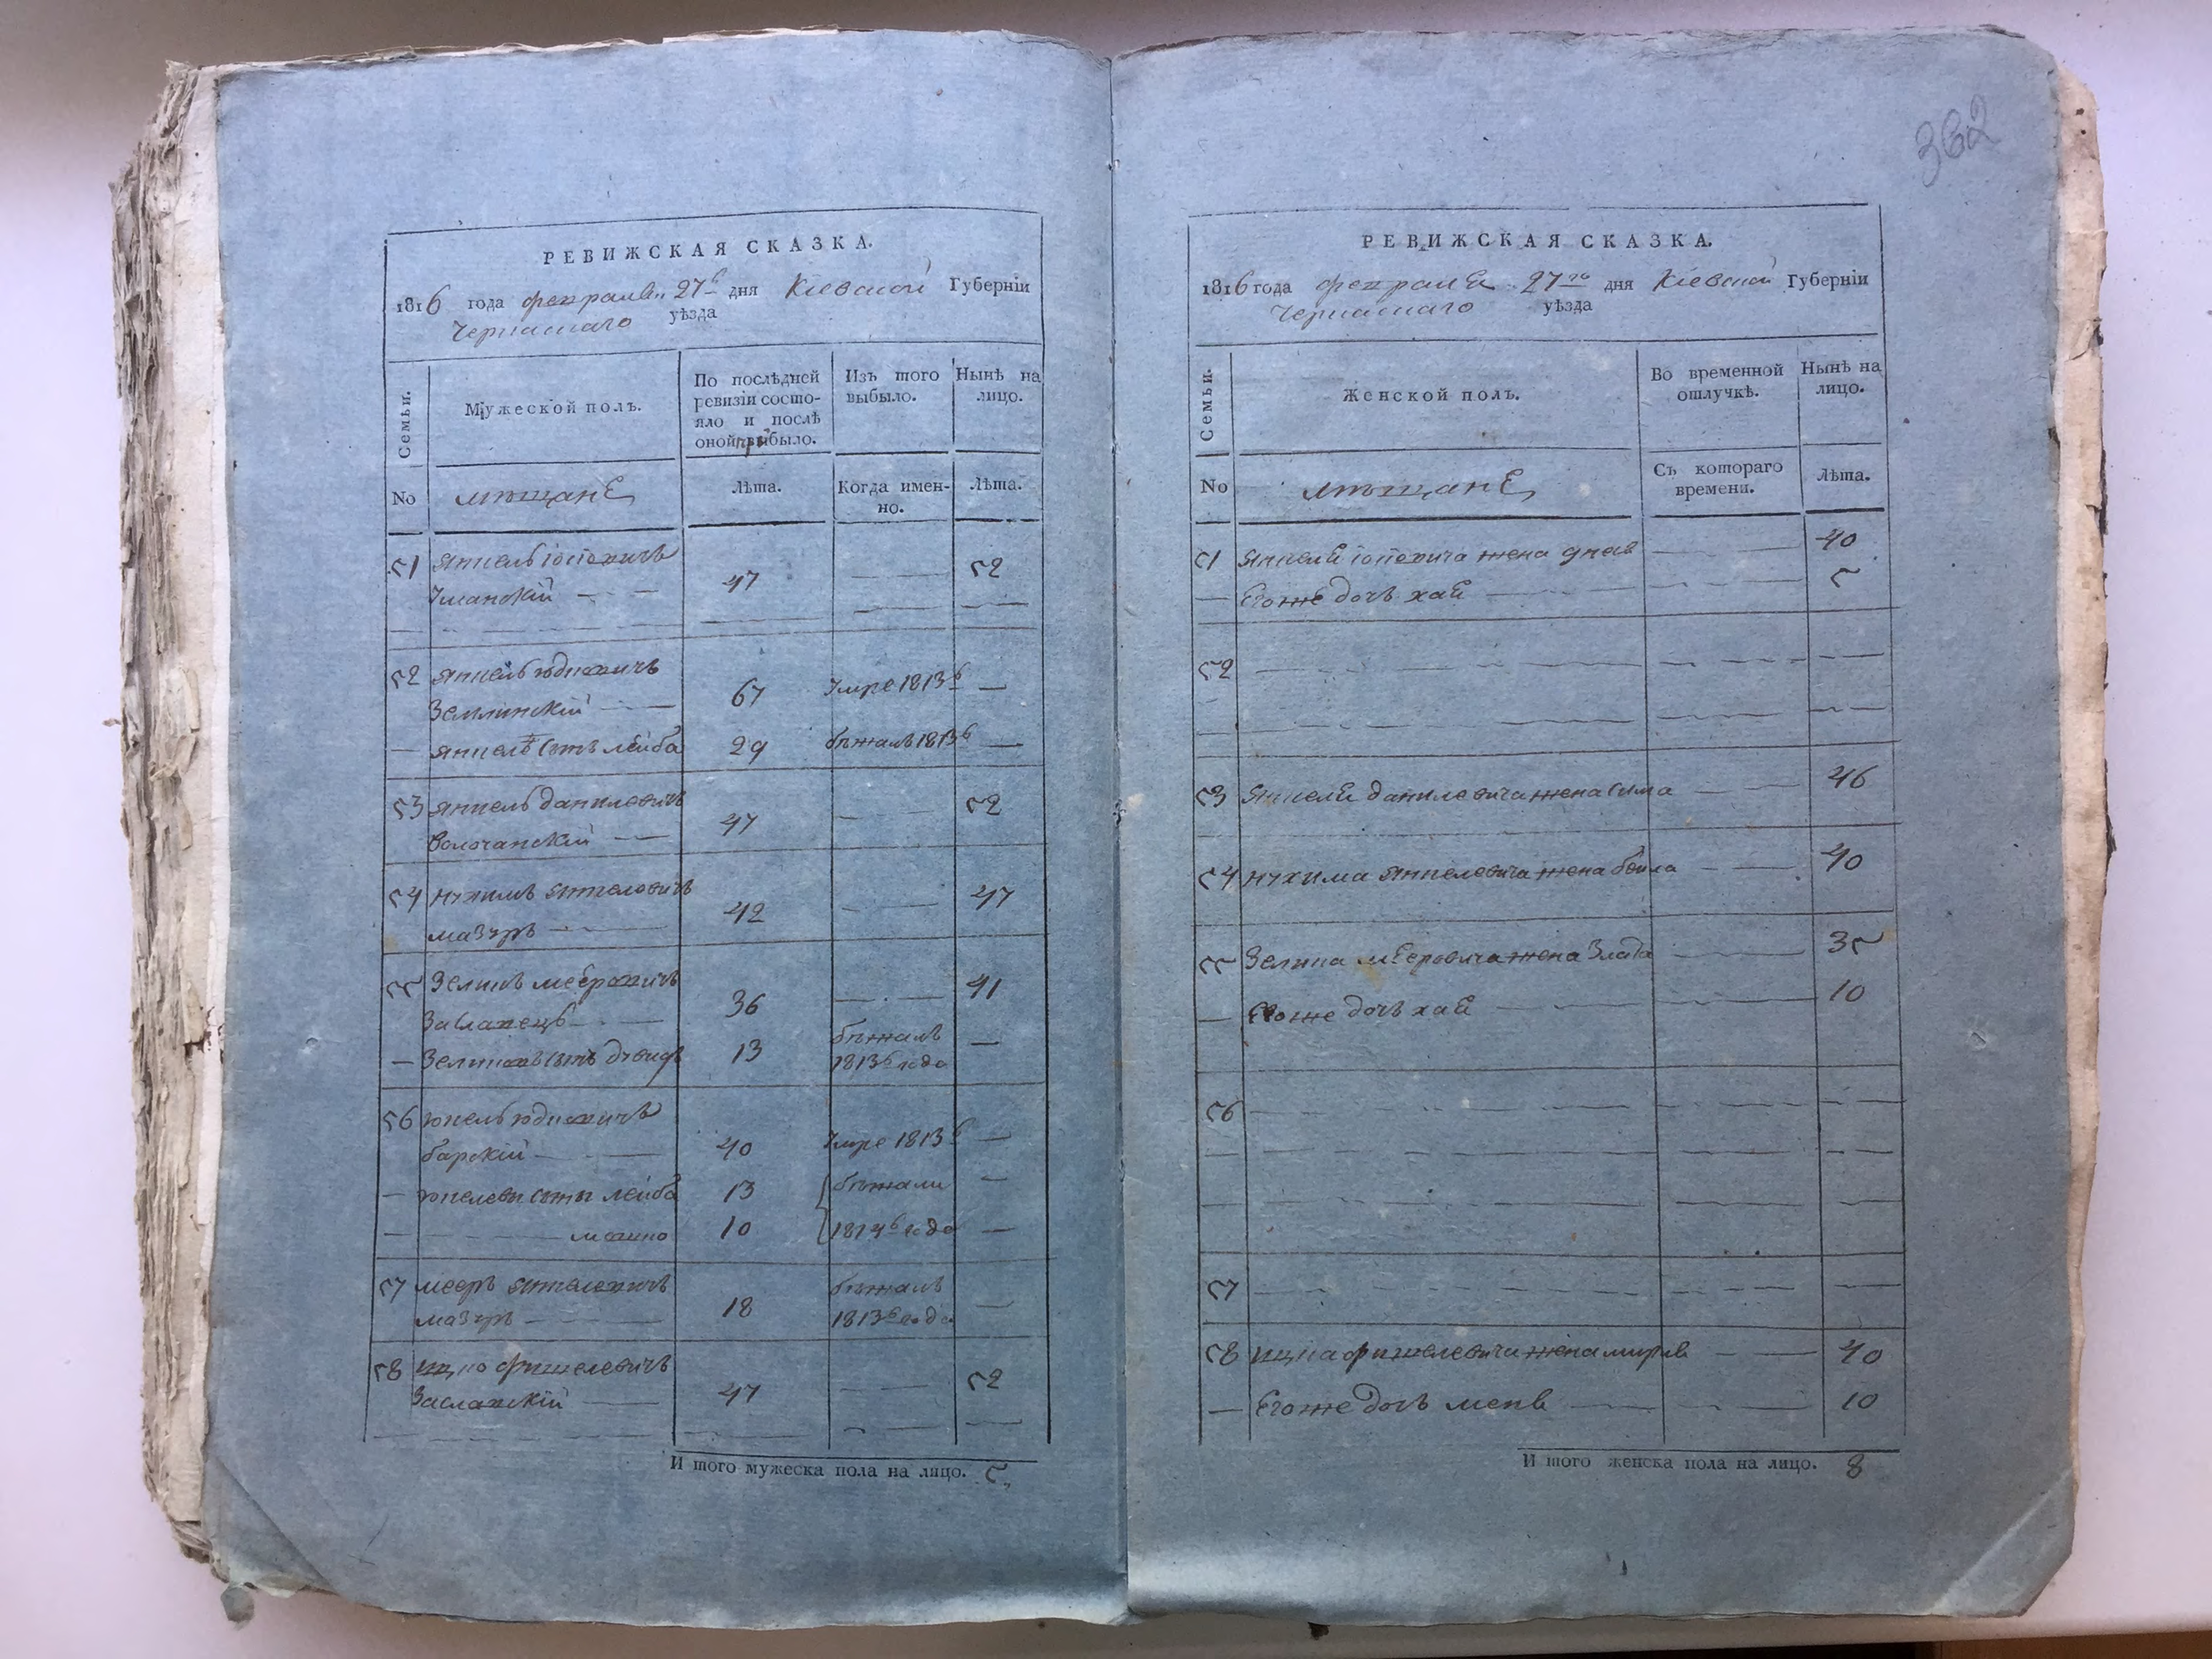 362
РЕВИЖСКАЯ СКАЗКА.
1816 года февраля 27г дня Кіевской Губерніи
Черкаскаго уѣзда
Семьи.
Мужеской полъ.
По послѣдней ревизіи состо-
яло и послѣ оной прибыло.
Изъ того выбыло.
Нынѣ на лицо.
No
мѣщане
Лѣта.
Когда имен-
но.
Лѣта.
51 Янкель Іосіовичъ
Уманскій 47 52
52 Янкель Юдковичъ
Земlинскій 67 Умре 1813г
Янкеля сынъ Лейба 29 бѣжалъ 1813г
53 Янкель Данилевичъ 52
Волочанскій 47
54 Нухимъ Янкелевичъ 47
Мазуръ 42
55 Зеликъ Мееровичъ 41
Заславецъ 36
Зеликовъ сынъ Дувидъ 13 бѣжалъ
1813г года
56 Юкель Юдковичъ
Барскій 40 Умре 1813г
Юкелевы сыны Лейба 13 бѣжали
Мошко 10 1814г года
57 Мееръ Янкелевичъ бѣжалъ
Мазуръ 18 1813г года
58 Ицко Фишелевичъ
Заславскій 47 52
И того мужеска пола на лицо. 5
РЕВИЖСКАЯ СКАЗКА.
1816 года февраля 27го дня Кіевской Губерніи
Черкаскаго уѣзда
Семьи.
Женской полъ.
Во временной отлучкѣ.
Нынѣ на лицо.
No
мѣщане
Съ котораго времени.
Лѣта.
51 Янкеля Іосіовича жена 40
Егоже дочь Хая 5
52
53 Янкеля Данилевича жена Сима 46
54 Нухима Янкелевича жена Бейла 40
55 Зелика Мееровича жена Злата 35
Егоже дочь Хая 10
56
57
58 Ицка Фишелевича жена 40
Егоже дочь 10
И того женска пола на лицо. 8